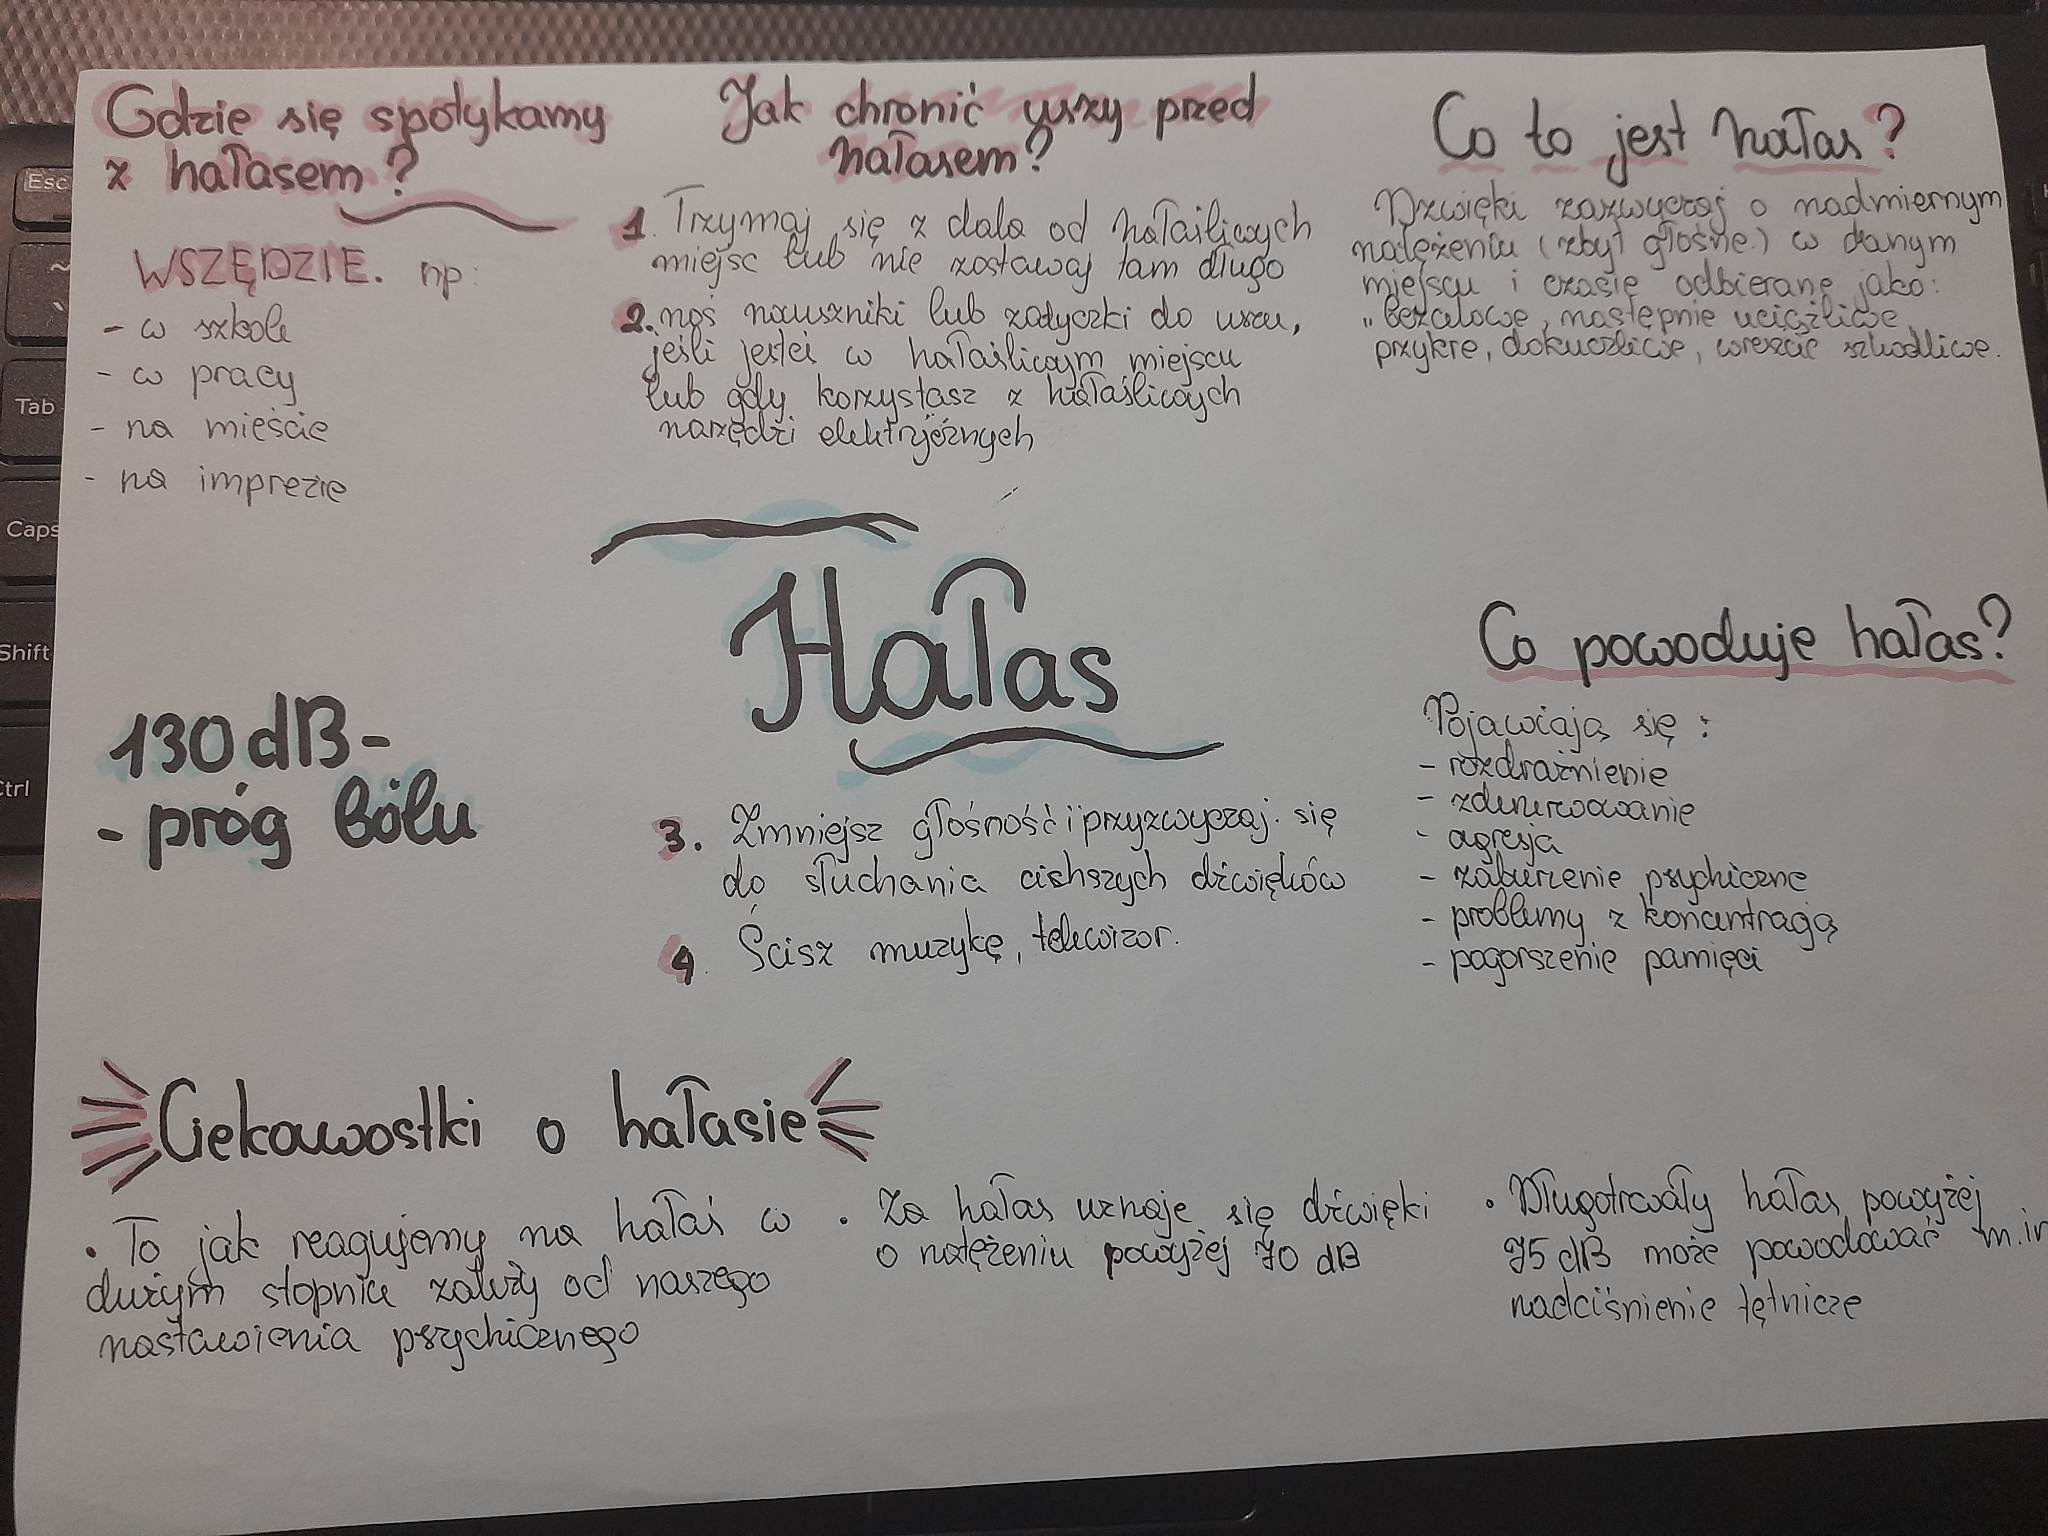 Gdzie się spotykamy
z hałasem?
WSZĘDZIE. np:
- w szkole
- w pracy
- na mieście
- na imprezie
Jak chronić uszy przed
hałasem?
1. Trzymaj się z dala od hałaśliwych
miejsc lub nie zostawaj tam długo
2. noś nauszniki lub zatyczki do uszu,
jeśli jesteś w hałaśliwym miejscu
lub gdy korzystasz z hałaśliwych
narzędzi elektrycznych
Co to jest hałas?
Dzwięki zazwyczaj o nadmiernym
natężeniu (zbyt głośne) w danym
miejscu i czasie odbierane jako:
"bezcelowe, następnie uciążliwe,
przykre, dokuczliwe, wreszcie szkodliwe.
Hałas
130 dB -
- próg bólu
3. Zmniejsz głośność i przyzwyczaj się
do słuchania cichszych dźwięków
4. Ścisz muzykę, telewizor.
Co powoduje hałas?
Pojawiają się:
- rozdrażnienie
- zdenerwowanie
- agresja
- zaburzenie psychiczne
- problemy z koncentracją
- pogorszenie pamięci
Ciekawostki o hałasie
• To jak reagujemy na hałas w
dużym stopniu zależy od naszego
nastawienia psychicznego
• Za hałas uznaje się dźwięki
o natężeniu powyżej 70 dB
• Długotrwały hałas powyżej
75 dB może powodować m.in
nadciśnienie tętnicze
Esc
Tab
Caps
Shift
Ctrl